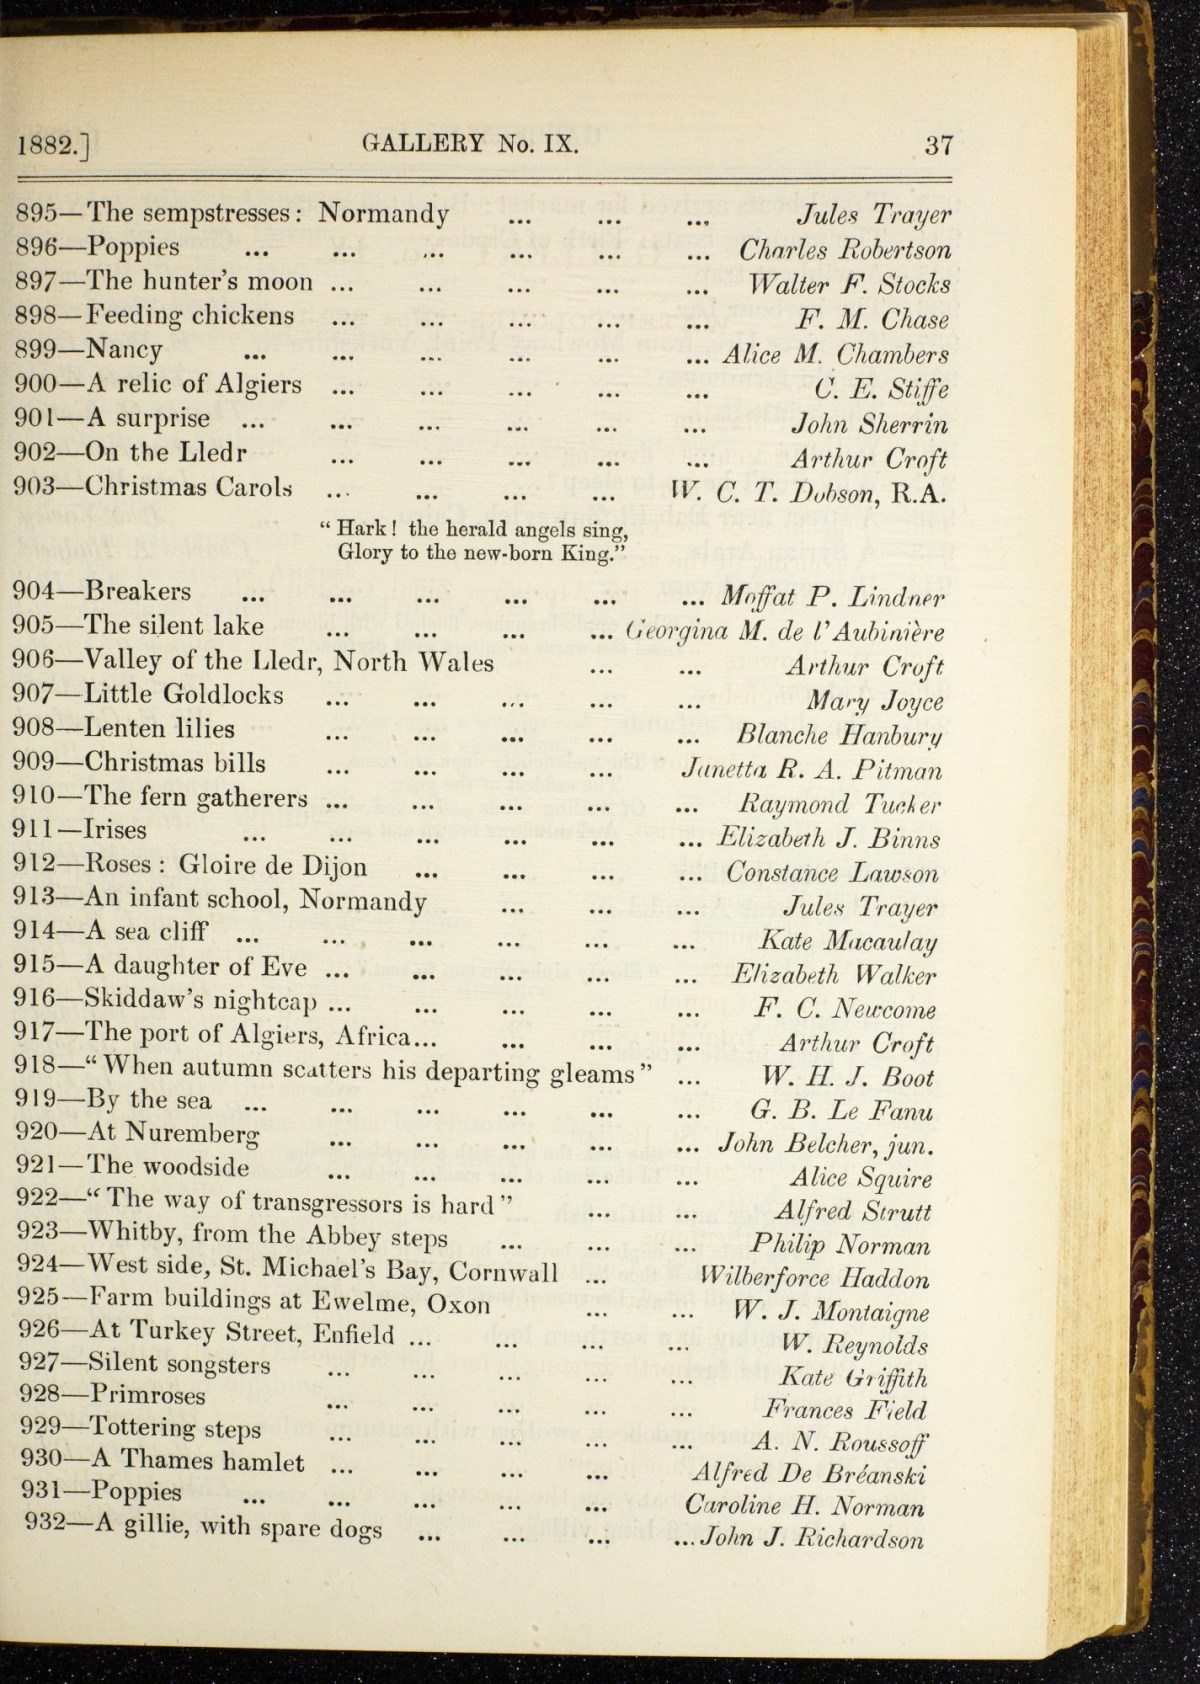 1882.] GALLERY No. IX. 37
895—The sempstresses: Normandy ... ... ... Jules Trayer
896—Poppies ... ... ... ... ... ... Charles Robertson
897—The hunter's moon ... ... ... ... ... Walter F. Stocks
898—Feeding chickens ... ... ... ... ... F. M. Chase
899—Nancy ... ... ... ... ... ... Alice M. Chambers
900—A relic of Algiers ... ... ... ... ... C. E. Stiffe
901—A surprise ... ... ... ... ... ... John Sherrin
902—On the Lledr ... ... ... ... ... Arthur Croft
903—Christmas Carols ... ... ... ... W. C. T. Dobson, R.A.
"Hark! the herald angels sing,
Glory to the new-born King."
904—Breakers ... ... ... ... ... ... Moffat P. Lindner
905—The silent lake ... ... ... ... Georgina M. de l'Aubinière
906—Valley of the Lledr, North Wales ... ... Arthur Croft
907—Little Goldlocks ... ... ... ... ... Mary Joyce
908—Lenten lilies ... ... ... ... ... Blanche Hanbury
909—Christmas bills ... ... ... ... Janetta R. A. Pitman
910—The fern gatherers ... ... ... ... ... Raymond Tucker
911—Irises ... ... ... ... ... ... Elizabeth J. Binns
912—Roses: Gloire de Dijon ... ... ... ... Constance Lawson
913—An infant school, Normandy ... ... ... Jules Trayer
914—A sea cliff ... ... ... ... ... ... Kate Macaulay
915—A daughter of Eve ... ... ... ... ... Elizabeth Walker
916—Skiddaw's nightcap ... ... ... ... ... F. C. Newcome
917—The port of Algiers, Africa... ... ... ... Arthur Croft
918—"When autumn scatters his departing gleams" ... W. H. J. Boot
919—By the sea ... ... ... ... ... ... G. B. Le Fanu
920—At Nuremberg ... ... ... ... ... John Belcher, jun.
921—The woodside ... ... ... ... ... Alice Squire
922—"The way of transgressors is hard" ... ... Alfred Strutt
923—Whitby, from the Abbey steps ... ... ... Philip Norman
924—West side, St. Michael's Bay, Cornwall ... Wilberforce Haddon
925—Farm buildings at Ewelme, Oxon ... ... W. J. Montaigne
926—At Turkey Street, Enfield ... ... ... ... W. Reynolds
927—Silent songsters ... ... ... ... ... Kate Griffith
928—Primroses ... ... ... ... ... Frances Field
929—Tottering steps ... ... ... ... ... A. N. Roussoff
930—A Thames hamlet ... ... ... ... Alfred De Bréanski
931—Poppies ... ... ... ... ... Caroline H. Norman
932—A gillie, with spare dogs ... ... ... ...John J. Richardson